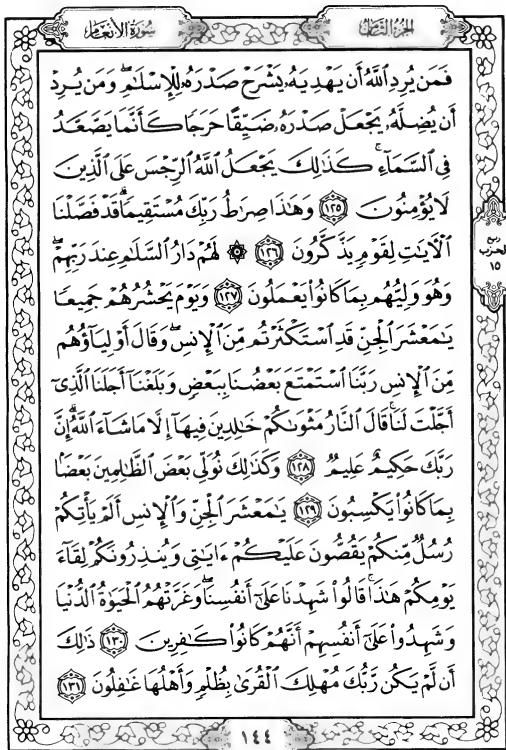 سُورَةُ الأَنْعَامِ
الجُزْءُ الثَّامِنُ
فَمَن يُرِدِ ٱللَّهُ أَن يَهْدِيَهُۥ يَشْرَحْ صَدْرَهُۥ لِلْإِسْلَٰمِ ۖ وَمَن يُرِدْ
أَن يُضِلَّهُۥ يَجْعَلْ صَدْرَهُۥ ضَيِّقًا حَرَجًا كَأَنَّمَا يَصَّعَّدُ
فِى ٱلسَّمَآءِ ۚ كَذَٰلِكَ يَجْعَلُ ٱللَّهُ ٱلرِّجْسَ عَلَى ٱلَّذِينَ
لَا يُؤْمِنُونَ ١٢٥ وَهَٰذَا صِرَٰطُ رَبِّكَ مُسْتَقِيمًا ۗ قَدْ فَصَّلْنَا
ٱلْءَايَٰتِ لِقَوْمٍ يَذَّكَّرُونَ ١٢٦ ۞ لَهُمْ دَارُ ٱلسَّلَٰمِ عِندَ رَبِّهِمْ ۖ
وَهُوَ وَلِيُّهُم بِمَا كَانُوا۟ يَعْمَلُونَ ١٢٧ وَيَوْمَ يَحْشُرُهُمْ جَمِيعًا
يَٰمَعْشَرَ ٱلْجِنِّ قَدِ ٱسْتَكْثَرْتُم مِّنَ ٱلْإِنسِ ۖ وَقَالَ أَوْلِيَآؤُهُم
مِّنَ ٱلْإِنسِ رَبَّنَا ٱسْتَمْتَعَ بَعْضُنَا بِبَعْضٍ وَبَلَغْنَآ أَجَلَنَا ٱلَّذِىٓ
أَجَّلْتَ لَنَا ۚ قَالَ ٱلنَّارُ مَثْوَىٰكُمْ خَٰلِدِينَ فِيهَآ إِلَّا مَا شَآءَ ٱللَّهُ ۗ إِنَّ
رَبَّكَ حَكِيمٌ عَلِيمٌ ١٢٨ وَكَذَٰلِكَ نُوَلِّى بَعْضَ ٱلظَّٰلِمِينَ بَعْضًۢا
بِمَا كَانُوا۟ يَكْسِبُونَ ١٢٩ يَٰمَعْشَرَ ٱلْجِنِّ وَٱلْإِنسِ أَلَمْ يَأْتِكُمْ
رُسُلٌ مِّنكُمْ يَقُصُّونَ عَلَيْكُمْ ءَايَٰتِى وَيُنذِرُونَكُمْ لِقَآءَ
يَوْمِكُمْ هَٰذَا ۚ قَالُوا۟ شَهِدْنَا عَلَىٰٓ أَنفُسِنَا ۖ وَغَرَّتْهُمُ ٱلْحَيَوٰةُ ٱلدُّنْيَا
وَشَهِدُوا۟ عَلَىٰٓ أَنفُسِهِمْ أَنَّهُمْ كَانُوا۟ كَٰفِرِينَ ١٣٠ ذَٰلِكَ
أَن لَّمْ يَكُن رَّبُّكَ مُهْلِكَ ٱلْقُرَىٰ بِظُلْمٍ وَأَهْلُهَا غَٰفِلُونَ ١٣١
ربع
الحزب
١٥
١٤٤